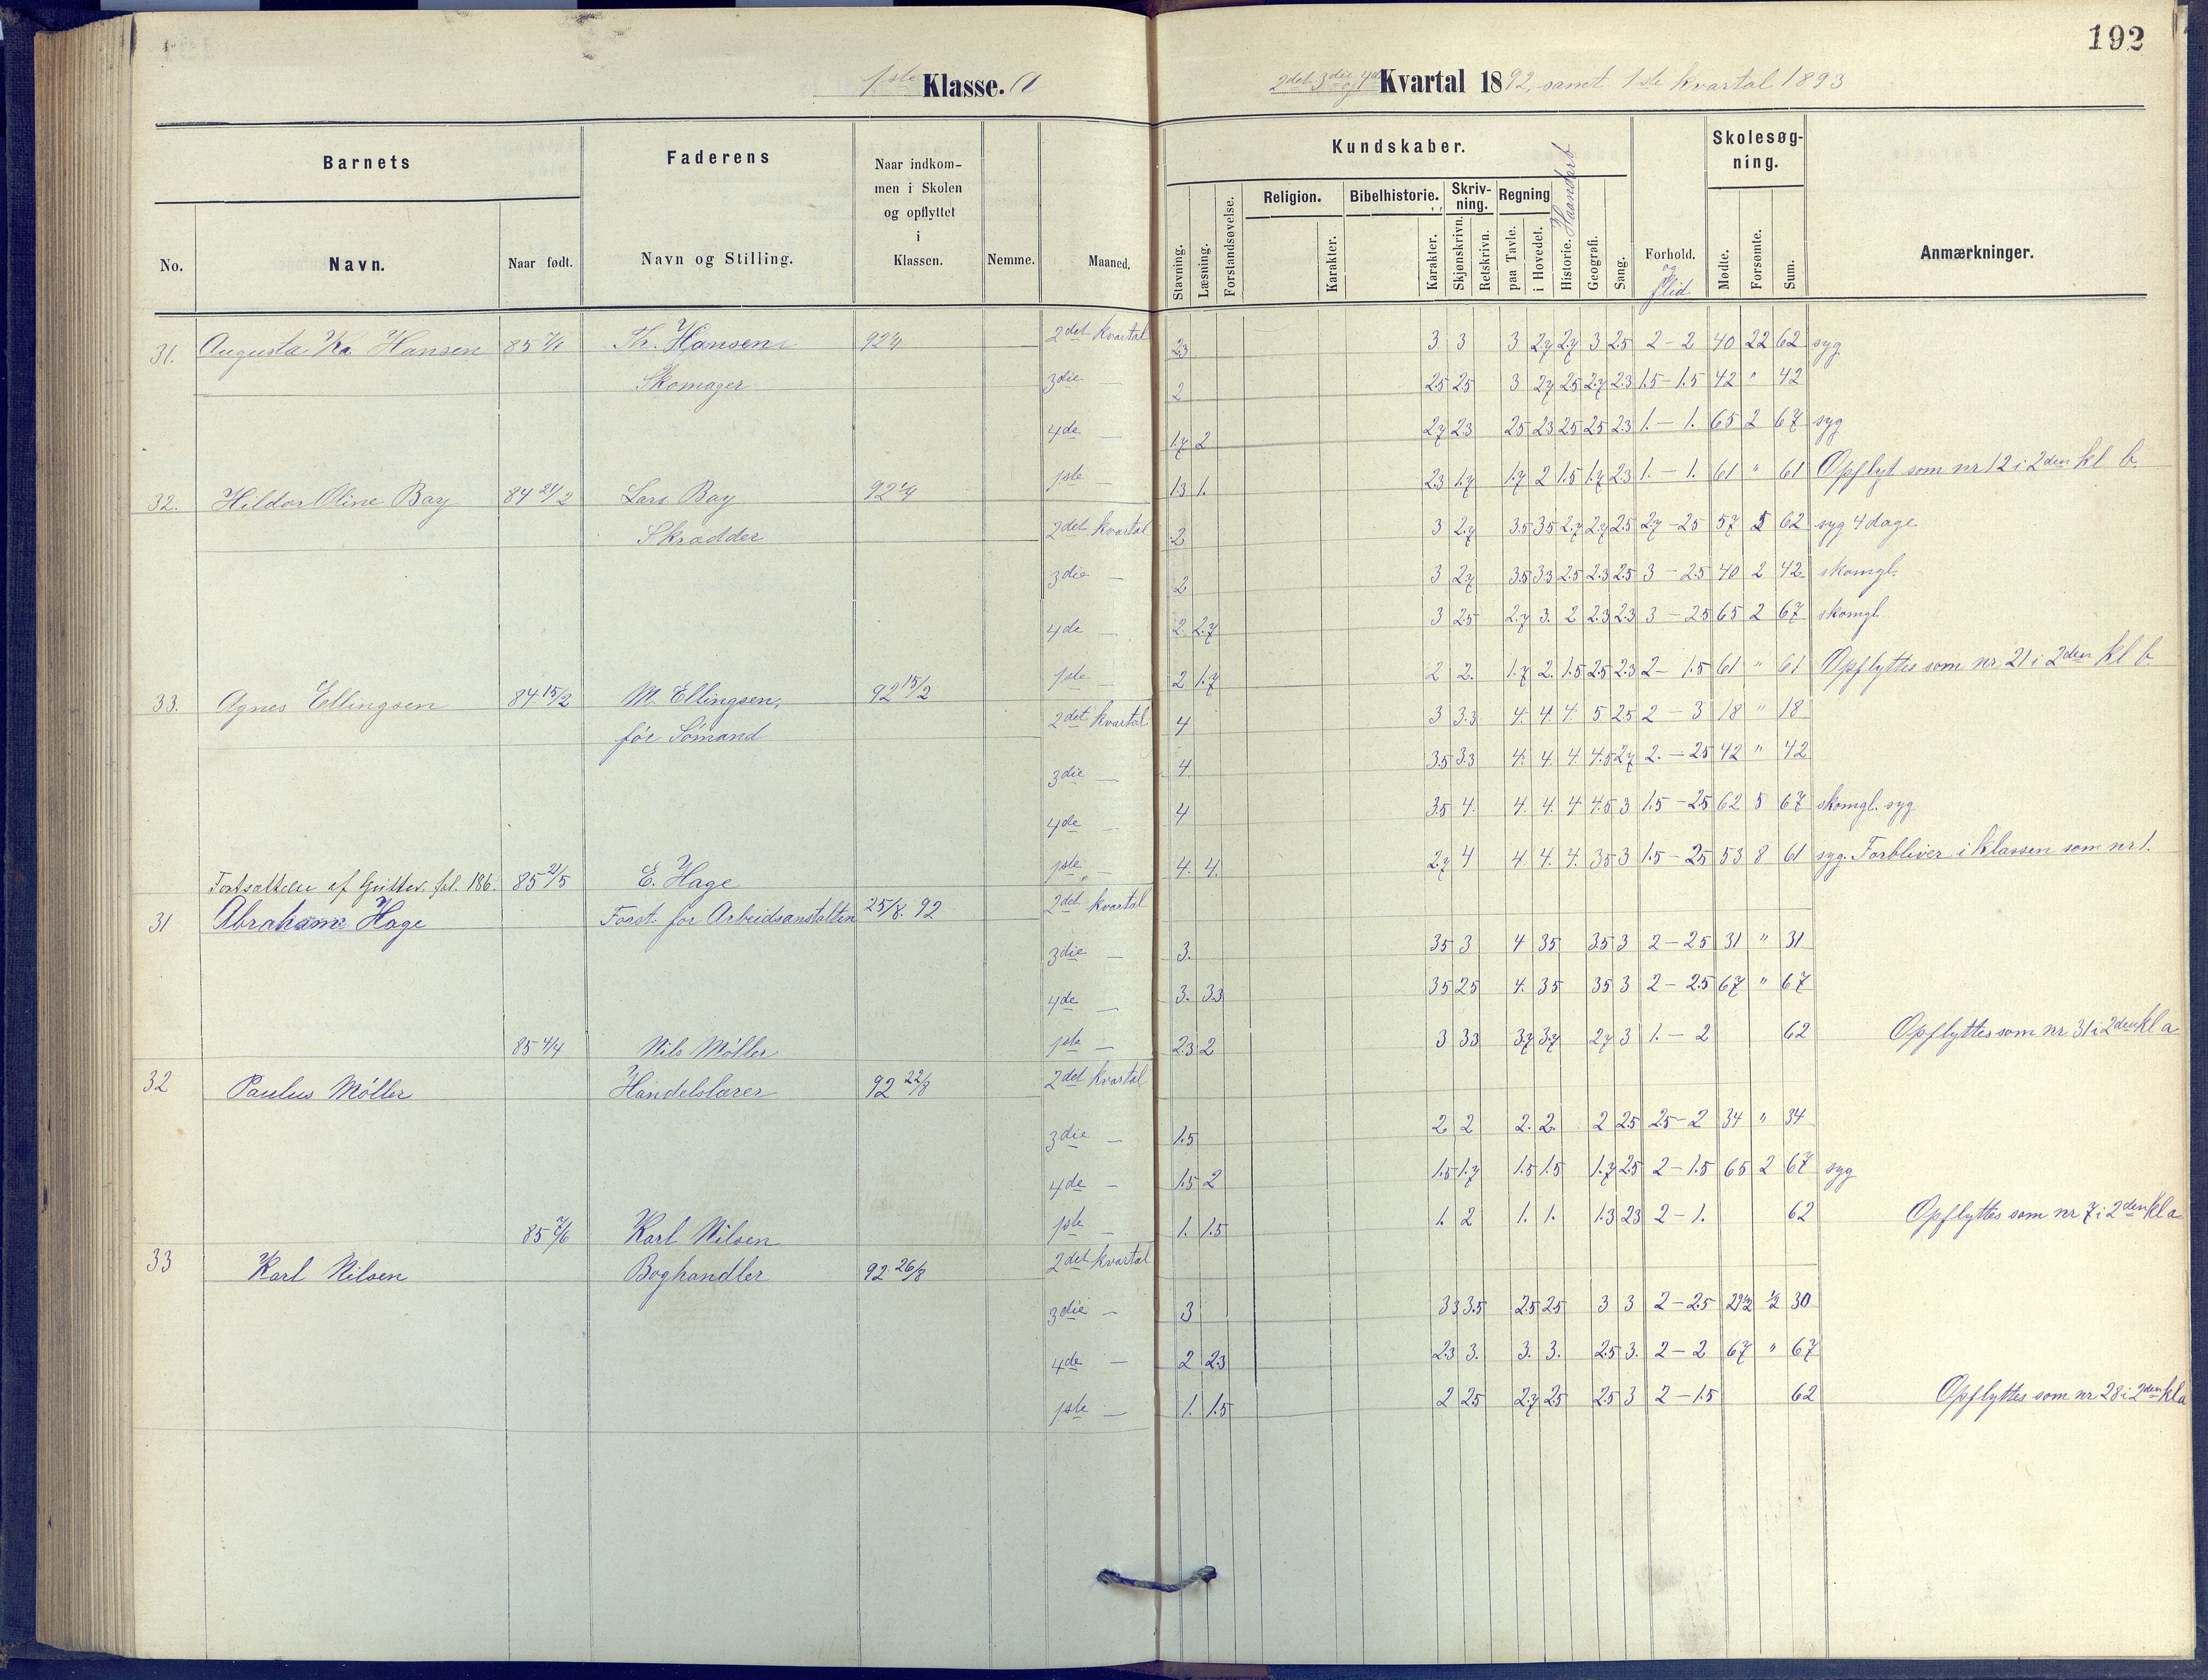 192
1ste Klasse. a
2det 3die og 4de Kvartal 1892, samt 1ste kvartal 1893
Barnets
Faderens
Naar indkom-
men i Skolen
og opflyttet
i
Klassen.
Kundskaber.
Skolesøg-
ning.
Religion. Bibelhistorie. Skriv-
ning. Regning
No. Navn. Naar født. Navn og Stilling. Nemme. Maaned. Stavning. Læsning. Forstandsøvelse. Karakter. Karakter. Skjønskrivn. Retskrivn. paa Tavle. i Hovedet. Historie. Haandarb Geografi. Sang. Forhold. og Flid Mødte. Forsømte. Sum. Anmærkninger.
31. Augusta Ka. Hansen Th. Hansen 2det kvartal 2.3 3 3 3 2.7 2.7 3 2.5 2-2 40 22 62 syg
Skomager 3die 2 2.5 2.5 3 2.7 2.5 2.7 2.3 1.5-1.5 42 " 42
4de — 1.7 2 2.7 2.3 2.5 2.3 2.5 2.5 2.3 1.-1. 65 2 67 syg
1ste — 1.3 1. 2.3 1.7 1.7 2 1.5 1.7 2.3 1.-1. 61 " 61 Opflyt som nr 12 i 2den kl b
32. Hildor Oline Bay 84 21/2 Lars Bay
Skrædder 2det kvartal 2 3 2.7 3.5 3.5 2.7 2.7 2.5 2.7-2.5 57 5 62 syg 4 dage
3die — 2 3 2.7 3.5 3.3 2.5 2.3 2.5 3-2.5 40 2 42 skomgl.
4de — 2. 2.7 3 2.5 2.7 3. 2 2.3 2.3 3-2.5 65 2 67 skomgl
1ste — 2 1.7 2 2. 1.7 2. 1.5 2.5 2.3 2-1.5 61 " 61 Opflyttes som nr 21 i 2den kl b
33. Agnes Ellingsen 84 15/2 M. Ellingsen, 92 15/2
før Sömand 2det kvartal 4 3 3.3 4. 4. 4. 5 2.5 2-3 18 " 18
3die — 4 3.5 3.3 4. 4. 4. 4.5 2.7 2.-2.5 42 " 42
4de — 4 3.5 4. 4. 4. 4 4.5 3 1.5-2.5 62 5 67 skomgl. syg
1ste — 4. 4. 2.7 4 4 4. 4. 3.5 3 1.5-2.5 53 8 61 syg. Forbliver i klassen som nr 1.
Fortsættelse af Gutter. fol. 186. 85 21/5 E. Hage
31 Abraham Hage Forst. for Arbeidsanstalten 25/8. 92 2det kvartal
3die — 3. 3.5 3 4 3.5 3.5 3 2-2.5 31 " 31
4de — 3. 3.3 3.5 2.5 4. 3.5 3.5 3 2-2.5 67 " 67
1ste — 2.3 2 3 3.3 3.7 3.7 2.7 3 1.-2 62 Opflyttes som nr 31 i 2den kl a
85 4/4 Nils Møller
32 Paulus Møller Handelslærer 92 22/8 2det kvartal
3die — 1.5 2 2 2. 2. 2 2.5 2.5-2 34 " 34
4de — 1.5 2 1.5 1.7 1.5 1.5 1.7 2.5 2-1.5 65 2 67 syg
1ste — 1. 1.5 1. 2 1. 1. 1.3 2.3 2-1. 62 Opflyttes som nr 7 i 2den kl a
Karl Nilsen
33 Karl Nilsen Boghandler 92 26/8 2det kvartal
3die — 3 3.3 3.5 2.5 2.5 3 3 2-2.5 29½ ½ 30
4de — 2 2.3 2.3 3. 3. 3. 2.5 3. 2-2 67 " 67
1ste — 1. 1.5 2 2.5 2.7 2.5 2.5 3 2-1.5 62 Opflyttes som nr 28 i 2den kl a